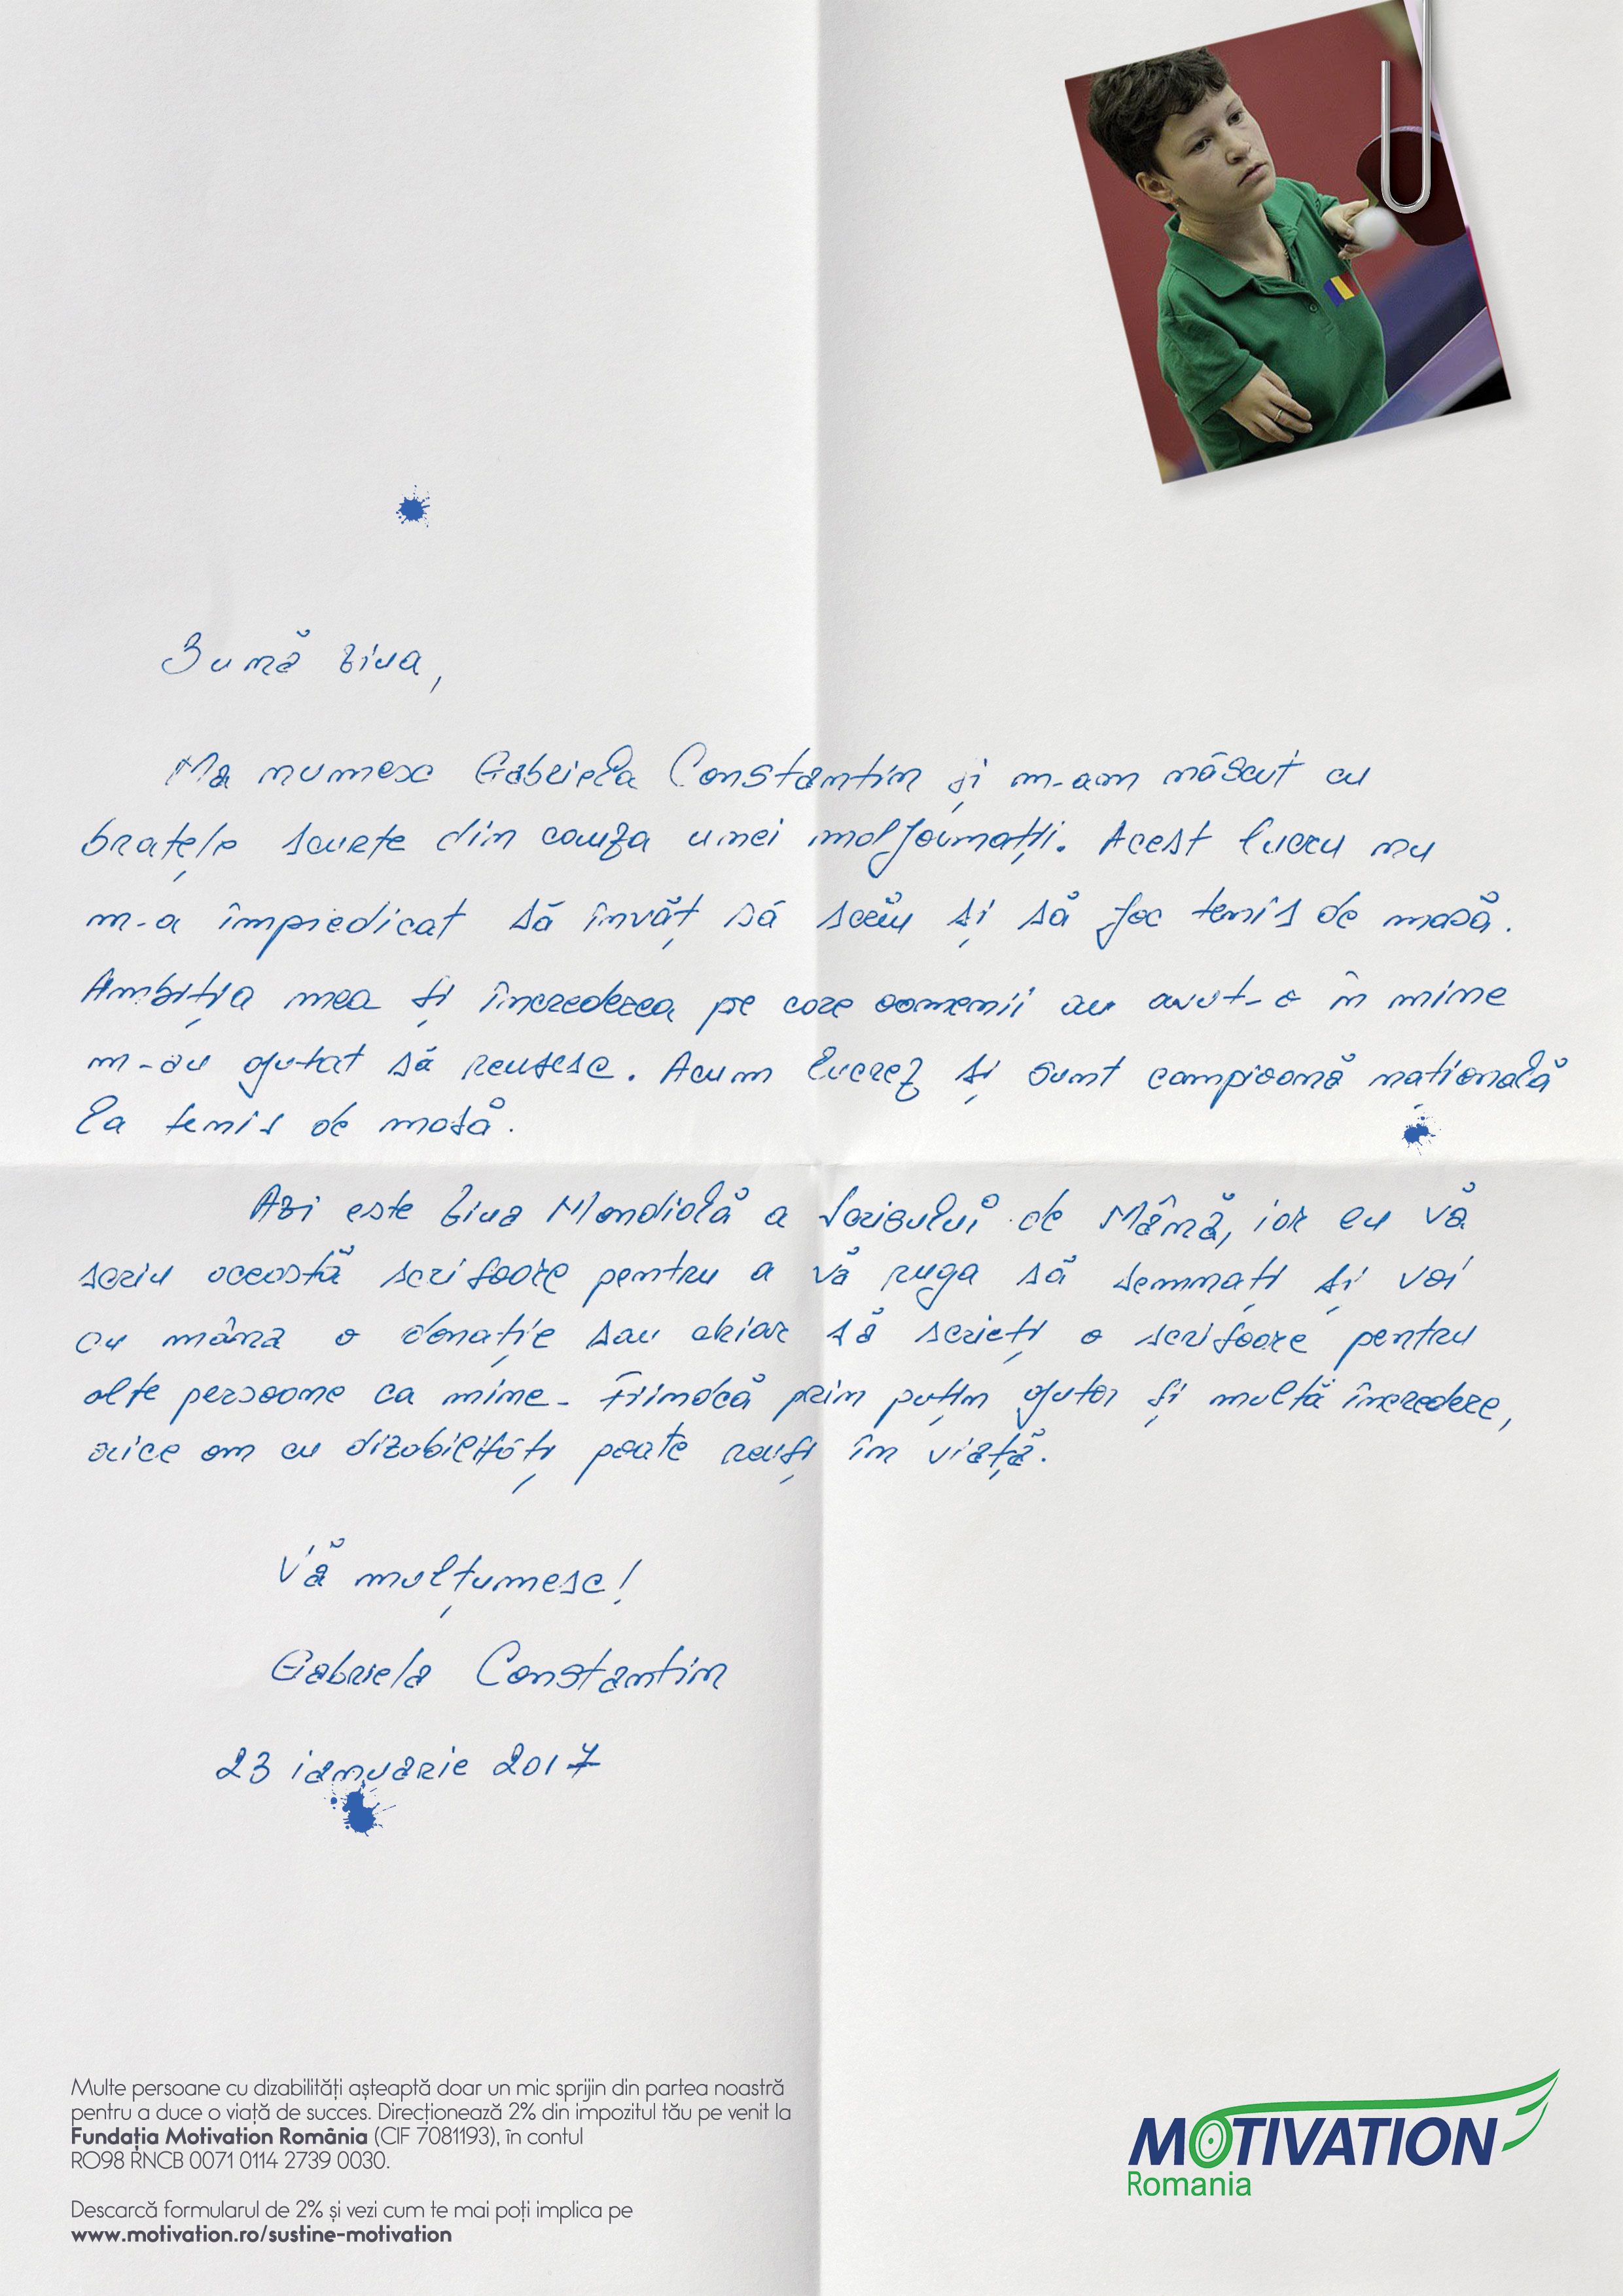 Bună ziua,
Mă numesc Gabriela Constantin și m-am născut cu
brațele scurte din cauza unei malformații. Acest lucru nu
m-a împiedicat să învăț să scriu și să joc tenis de masă.
Ambiția mea și încrederea pe care oamenii au avut-o în mine
m-au ajutat să reușesc. Acum lucrez și sunt campioană națională
la tenis de masă.
Azi este Ziua Mondială a Scrisului de Mână, iar eu vă
scriu această scrisoare pentru a vă ruga să semnați și voi
cu mâna o donație sau chiar să scrieți o scrisoare pentru
alte persoane ca mine. Fiindcă prin puțin ajutor și multă încredere,
orice om cu dizabilități poate reuși în viață.
Vă mulțumesc!
Gabriela Constantin
23 ianuarie 2017
Multe persoane cu dizabilități așteaptă doar un mic sprijin din partea noastră
pentru a duce o viață de succes. Direcționează 2% din impozitul tău pe venit la
Fundația Motivation România (CIF 7081193), în contul
RO98 RNCB 0071 0114 2739 0030.
Descarcă formularul de 2% și vezi cum te mai poți implica pe
www.motivation.ro/sustine-motivation
MOTIVATION
Romania